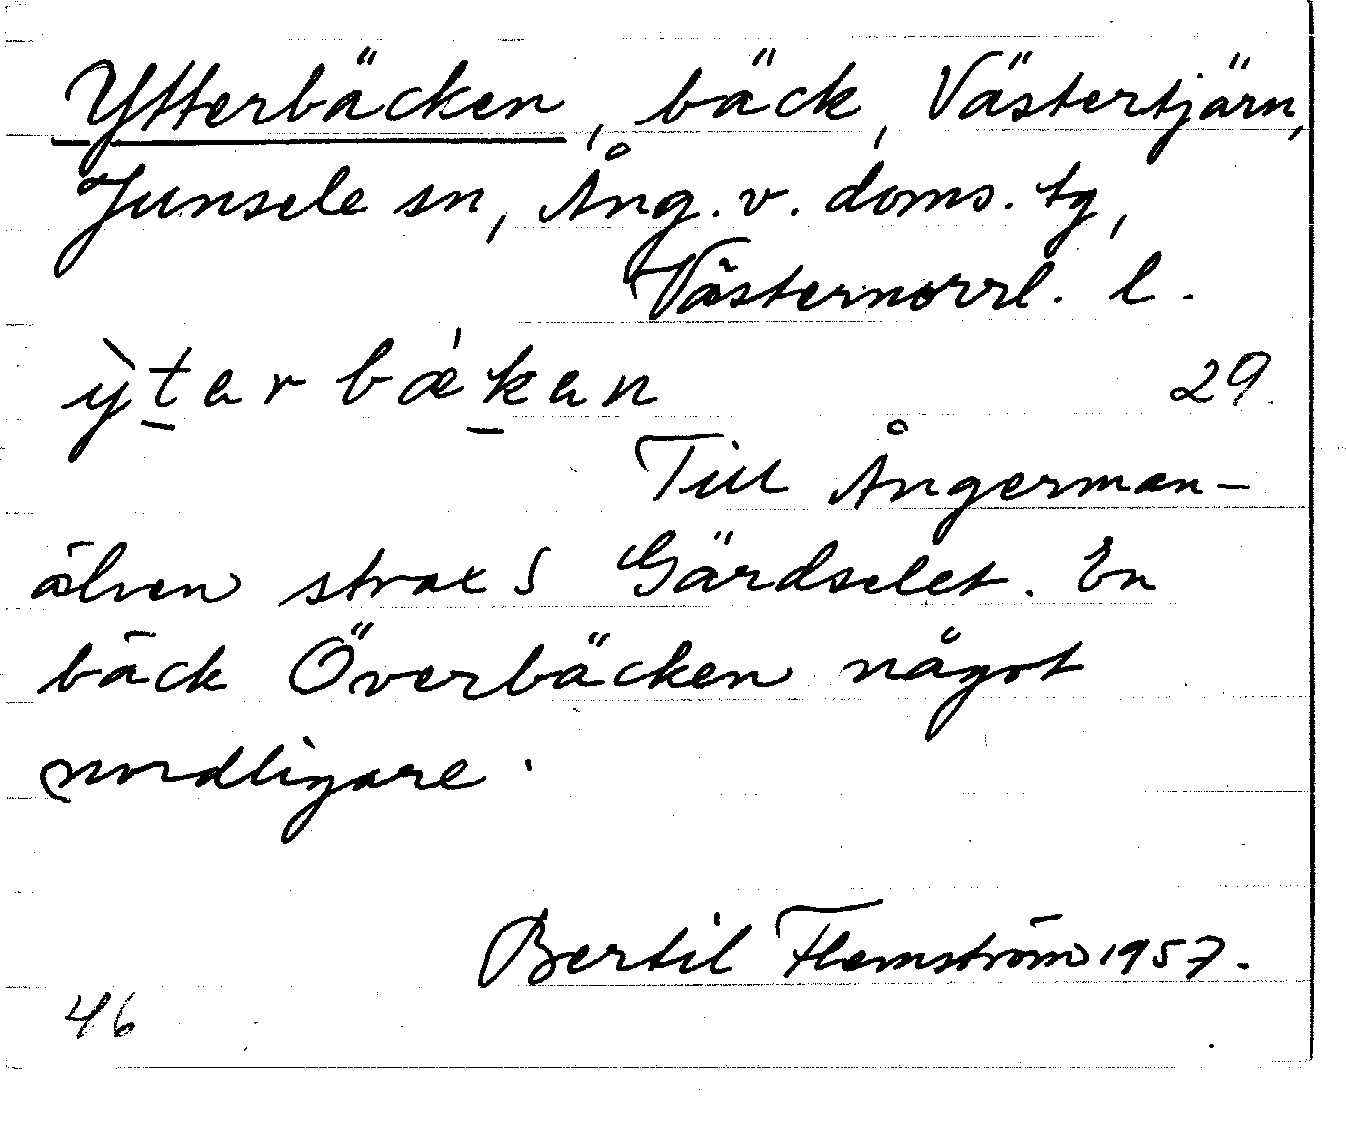 Ytterbäcken, bäck, Västertjärn,
Junsele sn, Ång. v. doms. tg,
Västernorrl. l.
ỳt̠ar bǽk̠an 29
Till Ångerman-
älven strax S Gärdselet. En
bäck Överbäcken något
nordligare.
Bertil Flemström 1957.
46